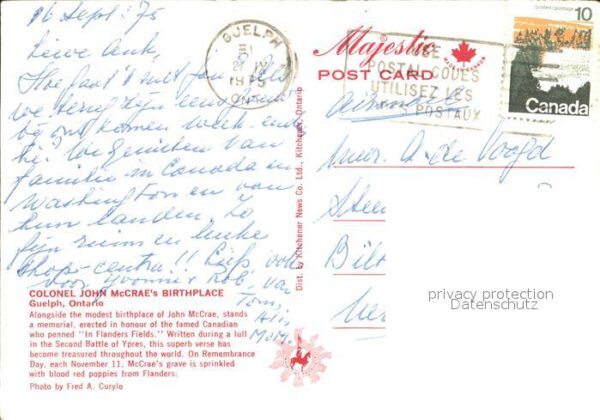 16 Sept. 75
Lieve Ank,
Hoe gaat 't met jou? Als
we terug zijn eens gauw
bij ons komen week-end
je? We genieten van
familie in Canada en
Washington en van
hun landen. Zo
fijn ruim en leuke
shop-centra!! Liefs, ook
voor Yvonne + Rob, van
Tom,
GUELPH
1975
ONT
USE
POSTAL CODES
UTILISEZ LES
POSTAUX
postes/postage
10
Canada
Majestic
MADE IN CANADA
POST CARD
airmail
Mevr. A. de Voogd
Steen
Bilt
Dist. by Kitchener News Co. Ltd., Kitchener, Ontario
privacy protection
Datenschutz
COLONEL JOHN McCRAE's BIRTHPLACE
Guelph, Ontario
Alongside the modest birthplace of John McCrae, stands
a memorial, erected in honour of the famed Canadian
who penned "In Flanders Fields." Written during a lull
in the Second Battle of Ypres, this superb verse has
become treasured throughout the world. On Remembrance
Day, each November 11, McCrae's grave is sprinkled
with blood red poppies from Flanders.
Photo by Fred A. Curylo